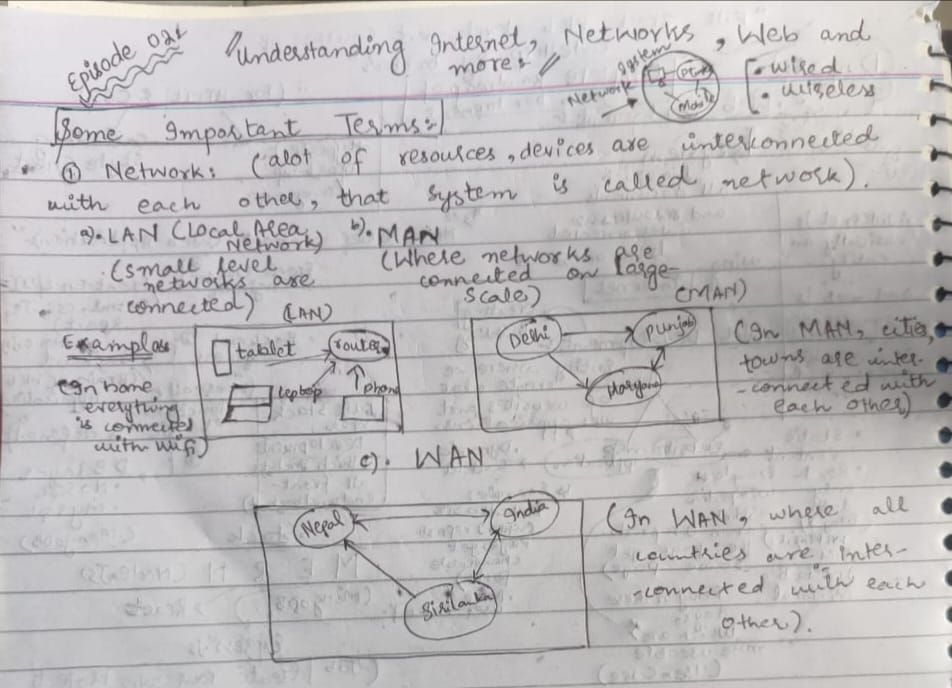 Episode 021
"Understanding Internet, Networks, Web and
more:"
Network System
PC
Mobile
• wired
• wireless
Some Important Terms:
① Network: (alot of resources, devices are interconnected
with each other, that system is called network).
a). LAN (Local Area
Network)
(small level
networks are
connected)
b). MAN
(Where networks are
connected on large
scale)
(LAN)
(MAN)
Examples
(In home
everything
is connected
with wifi)
tablet
router
laptop
phone
Delhi
Punjab
Haryana
(In MAN, cities,
towns are inter-
-connected with
each other)
c). WAN
Nepal
India
Sirilanka
(In WAN, where all
countries are inter-
-connected with each
other).